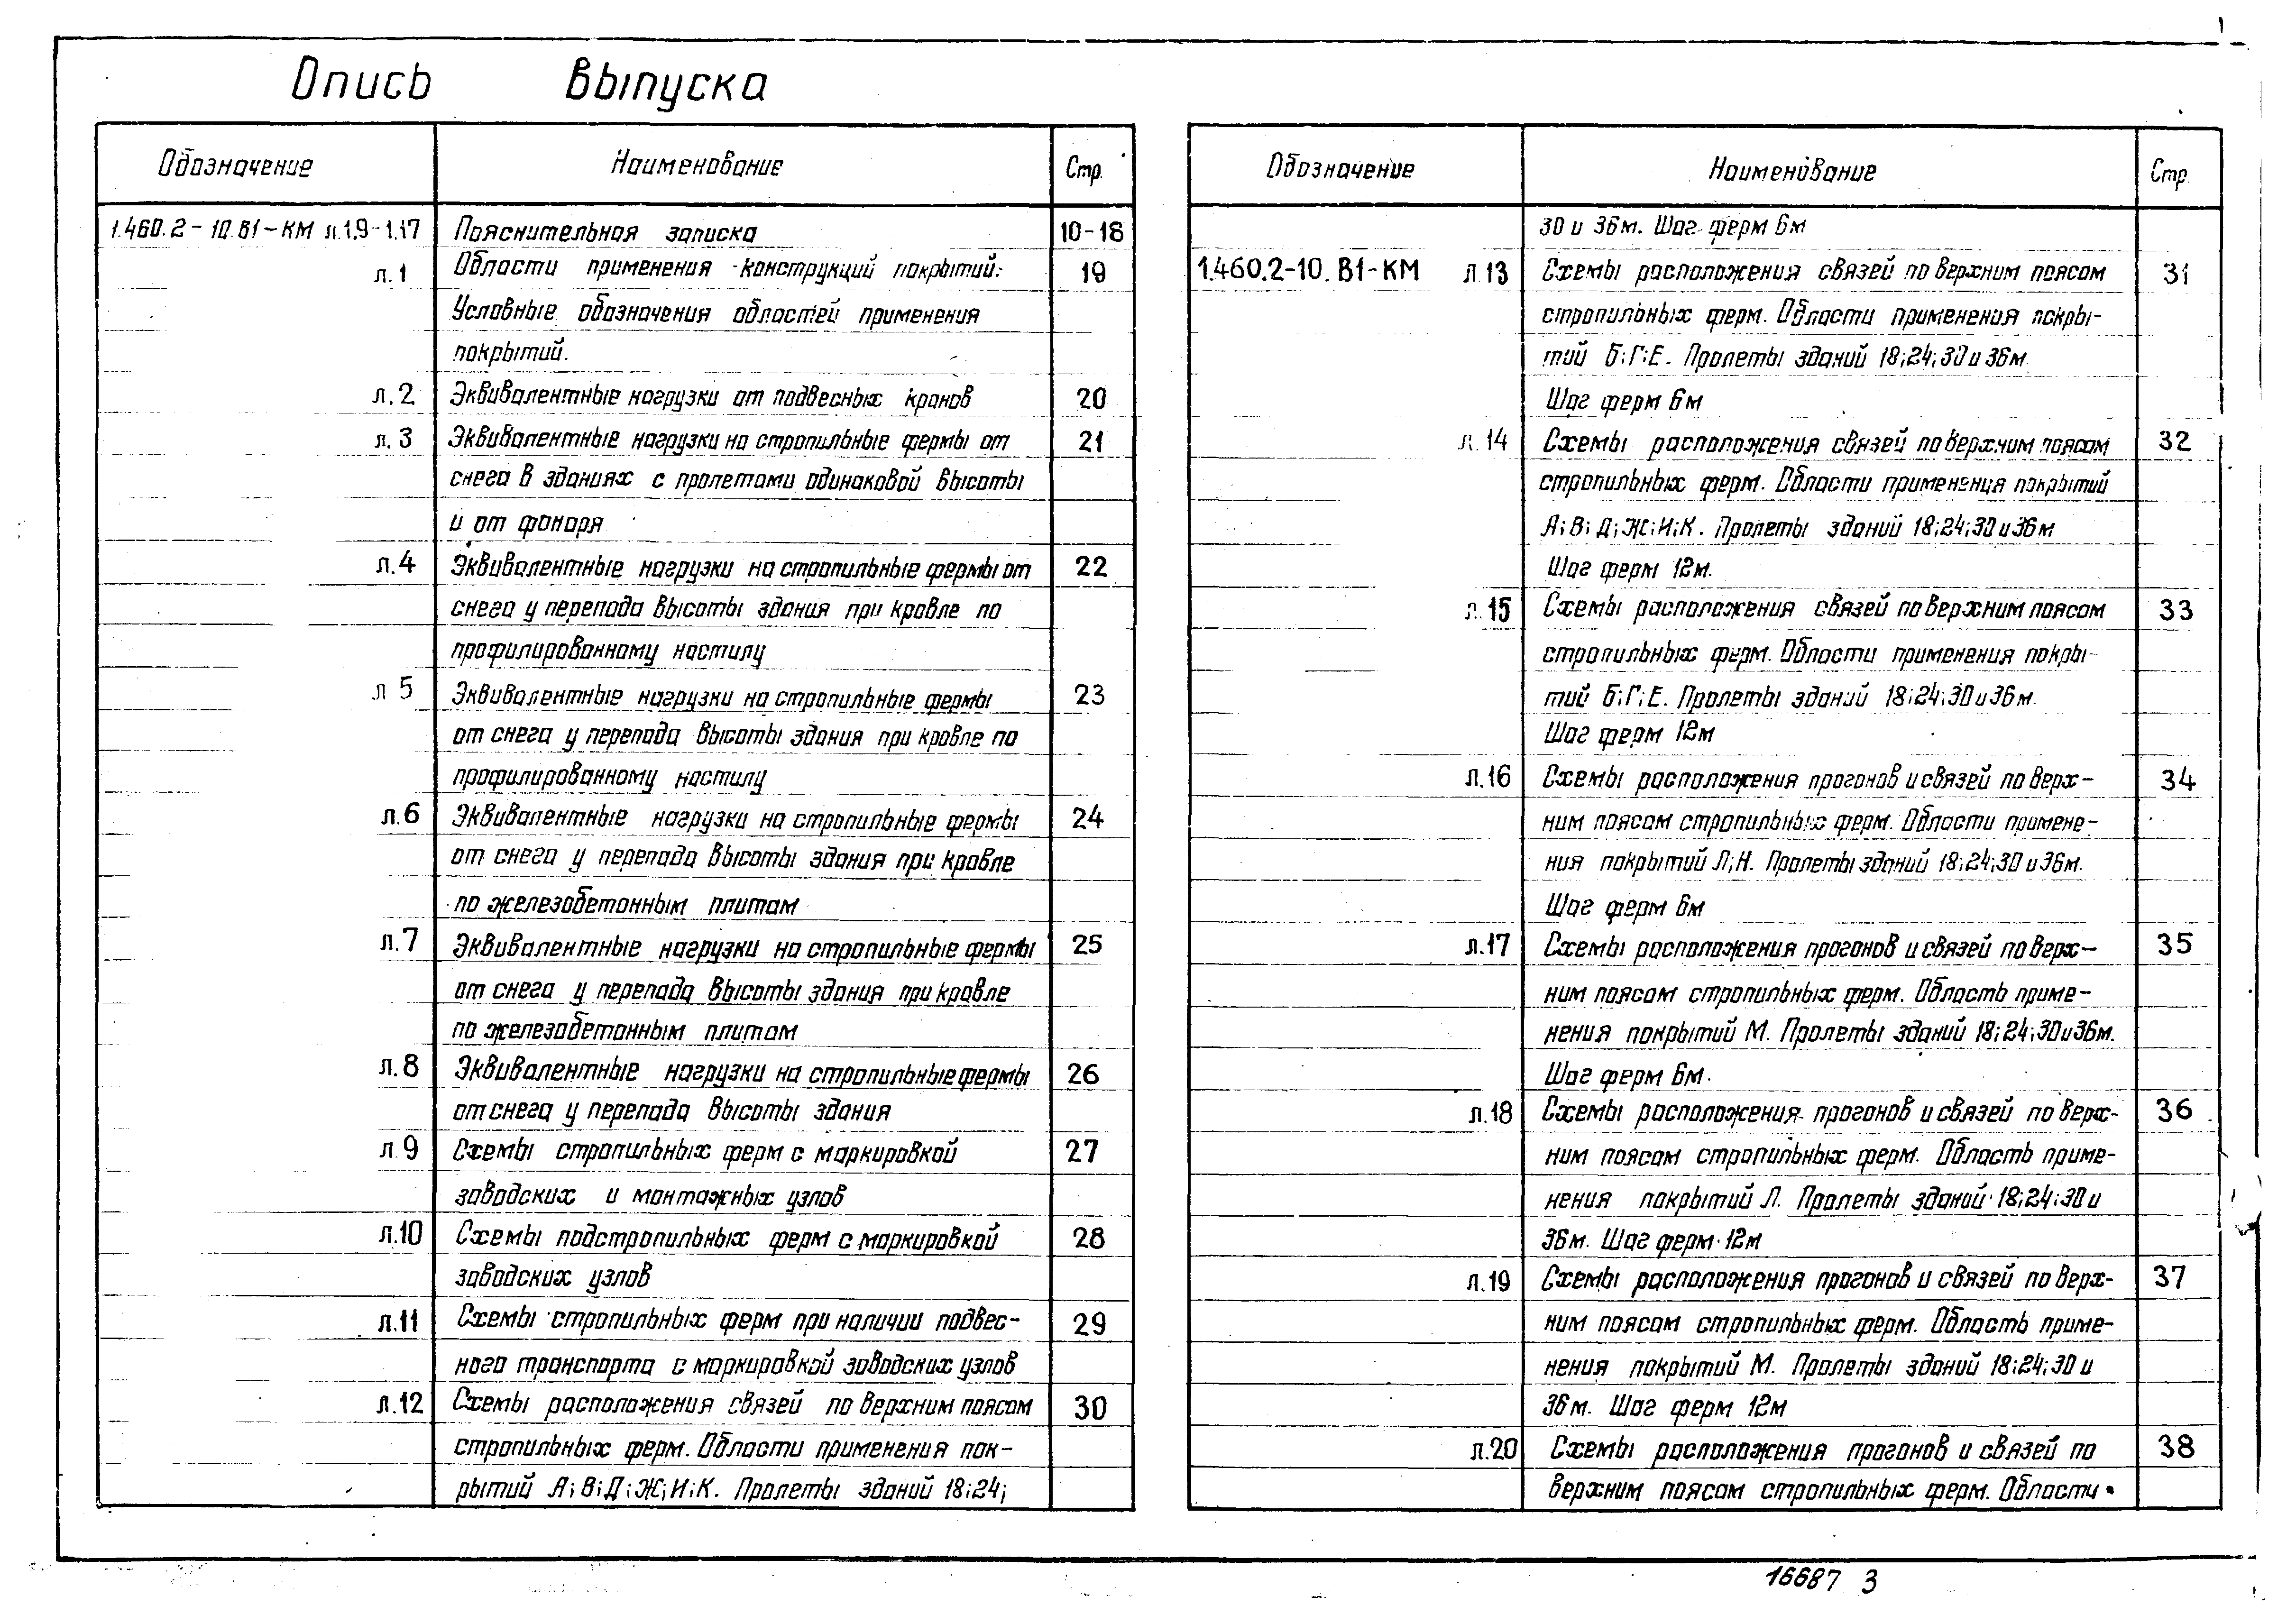 Опись выпуска
Обозначение Наименование Стр.
1.460.2-10.В1-КМ л.1.9-1.17 Пояснительная записка 10-18
л.1 Области применения конструкций покрытий. 19
Условные обозначения областей применения
покрытий.
л.2 Эквивалентные нагрузки от подвесных кранов 20
л.3 Эквивалентные нагрузки на стропильные фермы от 21
снега в зданиях с пролетами одинаковой высоты
и от фонаря
л.4 Эквивалентные нагрузки на стропильные фермы от 22
снега у перепада высоты здания при кровле по
профилированному настилу
л 5 Эквивалентные нагрузки на стропильные фермы 23
от снега у перепада высоты здания при кровле по
профилированному настилу
л.6 Эквивалентные нагрузки на стропильные фермы 24
от снега у перепада высоты здания при кровле
по железобетонным плитам
л.7 Эквивалентные нагрузки на стропильные фермы 25
от снега у перепада высоты здания при кровле
по железобетонным плитам
л.8 Эквивалентные нагрузки на стропильные фермы 26
от снега у перепада высоты здания
л.9 Схемы стропильных ферм с маркировкой 27
заводских и монтажных узлов
л.10 Схемы подстропильных ферм с маркировкой 28
заводских узлов
л.11 Схемы стропильных ферм при наличии подвес- 29
ного транспорта с маркировкой заводских узлов
л.12 Схемы расположения связей по верхним поясам 30
стропильных ферм. Области применения пок-
рытий А;В;Д;Ж;И;К. Пролеты зданий 18;24;
Обозначение Наименование Стр.
30 и 36м. Шаг ферм 6м
1.460.2-10.В1-КМ л.13 Схемы расположения связей по верхним поясам 31
стропильных ферм. Области применения покры-
тий Б;Г;Е. Пролеты зданий 18;24;30 и 36м.
Шаг ферм 6м
л.14 Схемы расположения связей по верхним поясам 32
стропильных ферм. Области применения покрытий
А;В;Д;Ж;И;К. Пролеты зданий 18;24;30 и 36м
Шаг ферм 12м.
л.15 Схемы расположения связей по верхним поясам 33
стропильных ферм. Области применения покры-
тий Б;Г;Е. Пролеты зданий 18;24;30 и 36м.
Шаг ферм 12м
л.16 Схемы расположения прогонов и связей по верх- 34
ним поясам стропильных ферм. Области примене-
ния покрытий Л;Н. Пролеты зданий 18;24;30 и 36м.
Шаг ферм 6м
л.17 Схемы расположения прогонов и связей по верх- 35
ним поясам стропильных ферм. Область приме-
нения покрытий М. Пролеты зданий 18;24;30 и 36м.
Шаг ферм 6м.
л.18 Схемы расположения прогонов и связей по верх- 36
ним поясам стропильных ферм. Область приме-
нения покрытий Л. Пролеты зданий 18;24;30 и
36м. Шаг ферм 12м
л.19 Схемы расположения прогонов и связей по верх- 37
ним поясам стропильных ферм. Область приме-
нения покрытий М. Пролеты зданий 18;24;30 и
36м. Шаг ферм 12м
л.20 Схемы расположения прогонов и связей по 38
верхним поясам стропильных ферм. Области
16687 3